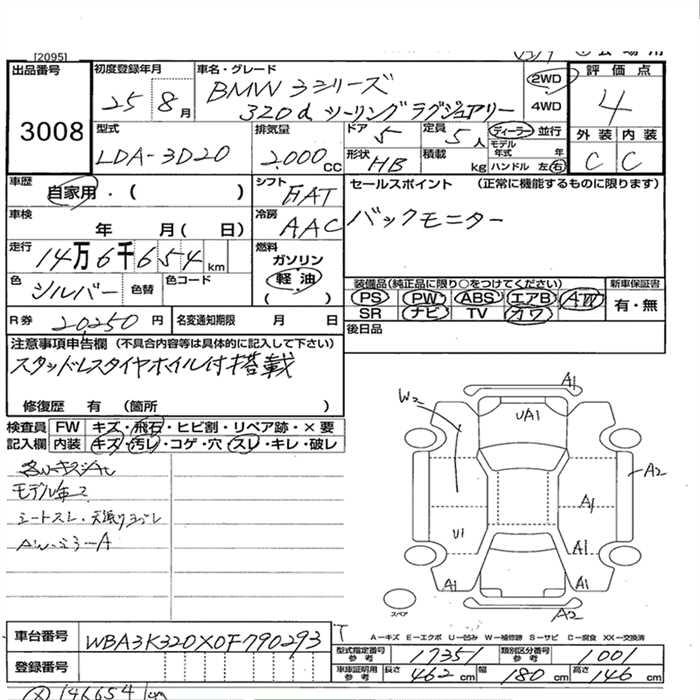 [2095]
出品番号
3008
初度登録年月
25 8月
車名・グレード
BMW 3シリーズ
320d ツーリングラグジュアリー
2WD
4WD
評価点
4
外装 内装
C C
型式
LDA-3D20
排気量
2000CC
ドア 5
形状 HB
定員 5人
積載 kg
ディーラー 並行
モデル年式 年
ハンドル 左 右
車歴
自家用・( )
シフト
FAT
セールスポイント (正常に機能するものに限ります)
バックモニター
車検
年 月( 日)
冷房
AAC
走行
14万6千654km
燃料
ガソリン
軽油
( )
色
シルバー
色替
色コード
装備品(純正品に限り○をつけてください)
PS PW ABS エアB AW
SR ナビ TV カワ
新車保証書
有・無
R券 20,250円
名変通知期限 月 日
後日品
注意事項申告欄 (不具合内容等は具体的に記入して下さい)
スタッドレスタイヤホイル付搭載
修復歴 有 (箇所 )
検査員記入欄
FW キズ・飛石・ヒビ割・リペア跡・×要
内装 キズ・汚レ・コゲ・穴・スレ・キレ・破レ
シートスレ・天張りヨゴレ
W2
A1
UA1
A2
A1
U1
A1
A1
A1
A2
スペア
A―キズ E―エクボ U―凹み W―補修跡 S―サビ C―腐食 XX―交換済
車台番号
WBA3K320X0F790293
登録番号
型式指定番号参考 17351
類別区分番号参考 1001
車庫証明用参考 長さ 462cm 幅 180cm 高さ 146cm
146654km